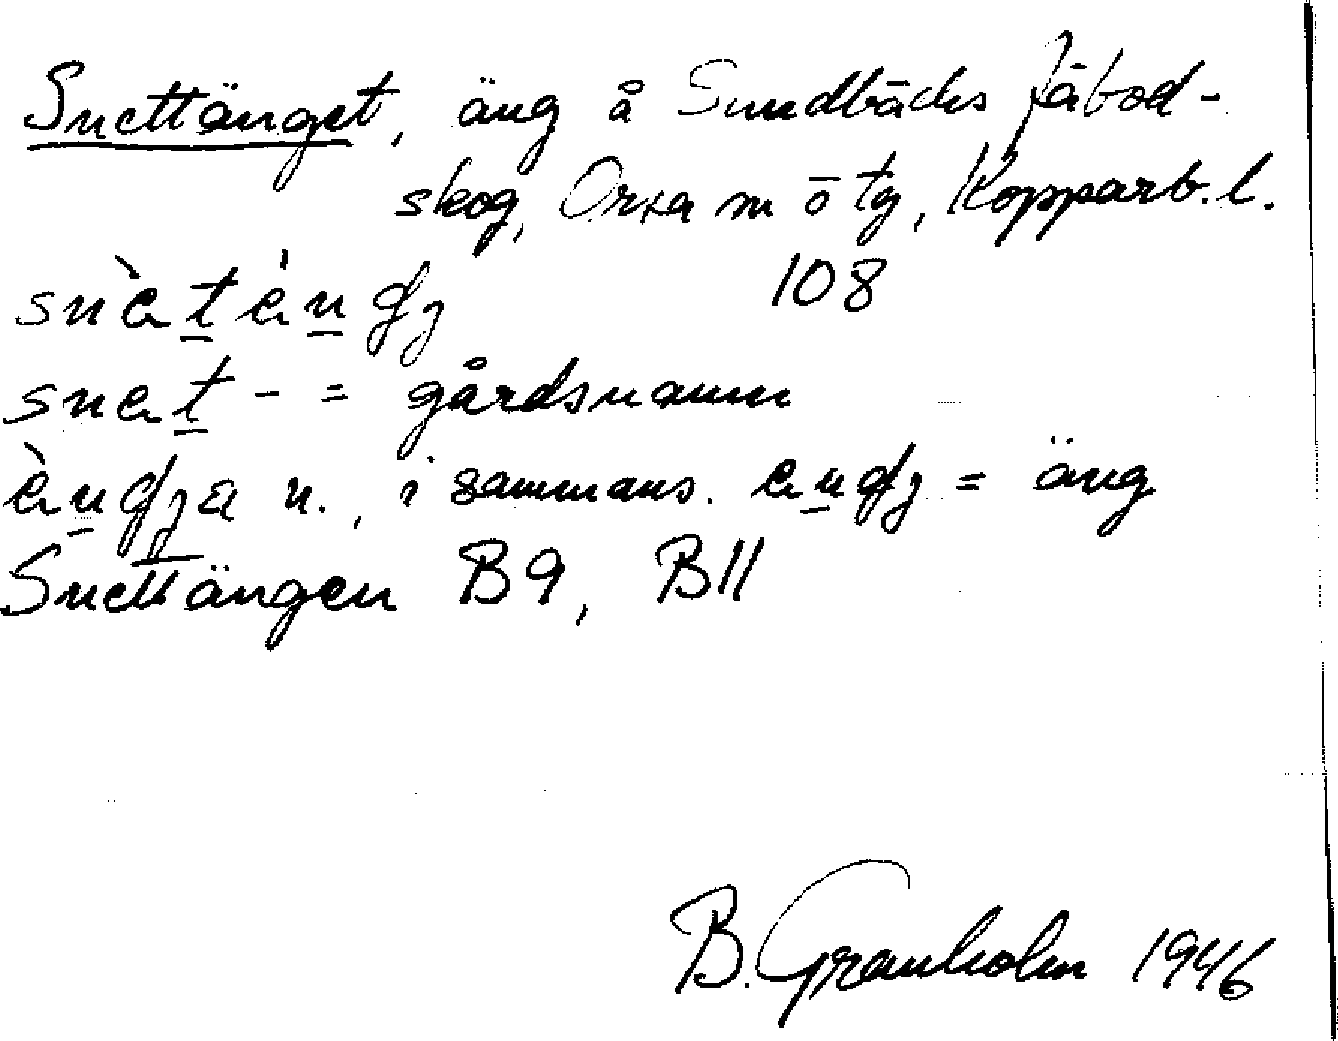 Snettänget, äng å Sundbäcks fäbod-
skog, Orsa m ō tg, Kopparb. l.
108
snet- = gårdsnamn
n., i sammans. = äng
Snettängen B9, B11
B. Granholm 1946